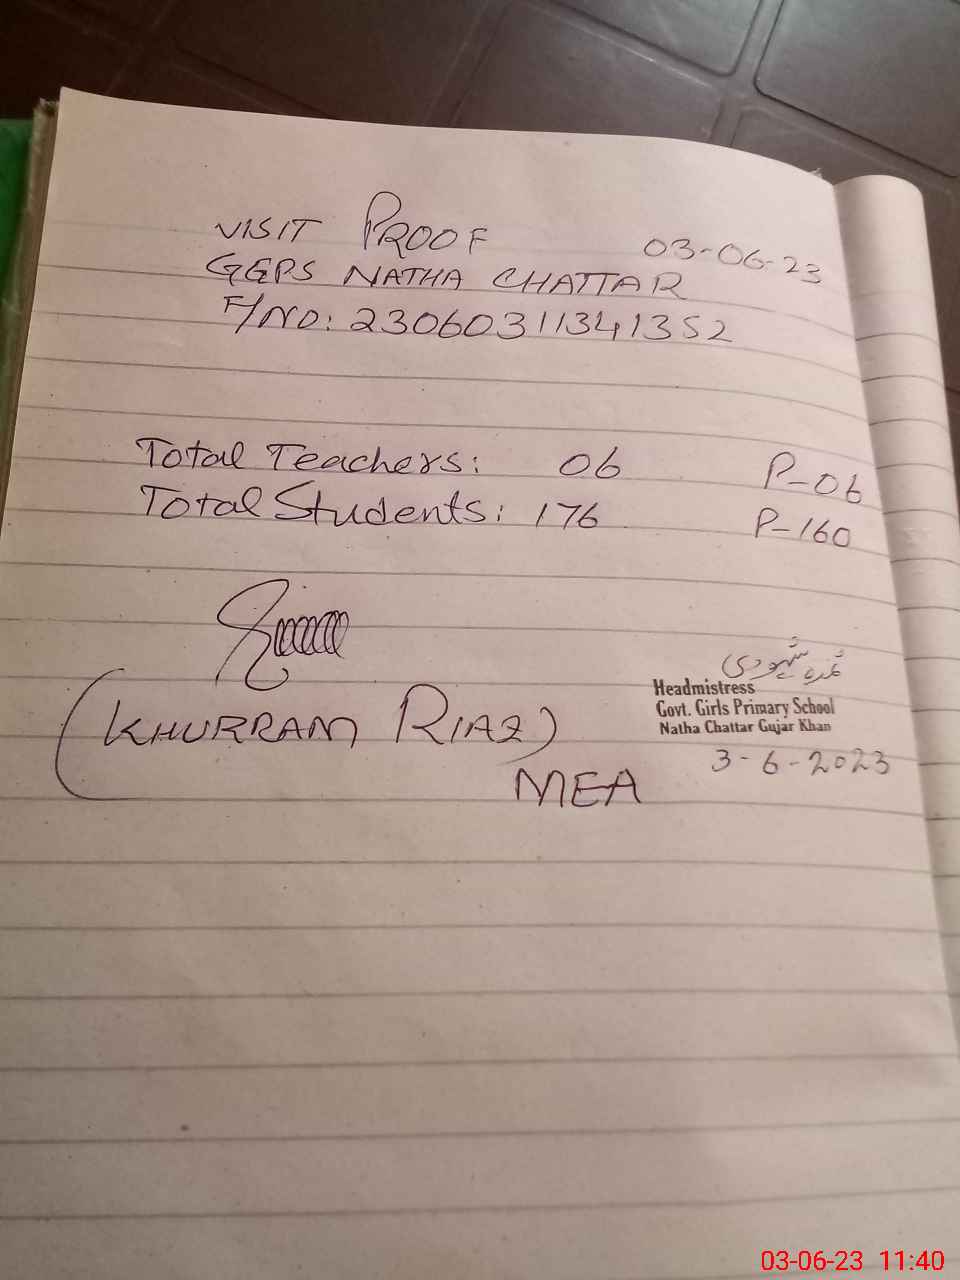 VISIT PROOF 03-06-23
GGPS NATHA CHATTAR
F/NO: 23060311341352
Total Teachers: 06 P-06
Total Students: 176 P-160
(KHURRAM RIAZ)
MEA
Headmistress
Govt. Girls Primary School
Natha Chattar Gujar Khan
3-6-2023
03-06-23 11:40